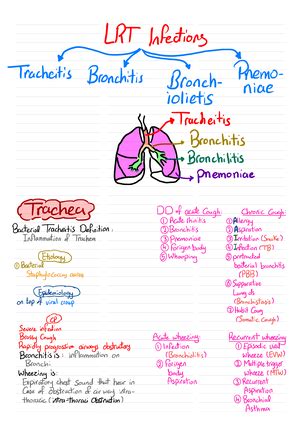 LRT Infections
Tracheitis
Bronchitis
Bronch-
iolietis
Pnemo-
niae
Tracheitis
Bronchitis
Bronchilitis
pnemoniae
Trachea
Bacterial Tracheitis Definition:
Inflammation of Trachea
Etiology
① Bacterial
Staphylococcus
Epidemiology
on top of viral croup
CP
Severe infection
Brassy Cough
Rapidly progression airways obstructory
Bronchitis is: inflammation on
Bronchi.
Wheezing is:
Expiratory chest Sound that hear in
Case of obstruction of airway intra-
thoracic (intra-thoracic Obstruction)
DD of acute Cough:
① Acute rhinitis
② Bronchitis
③ Pnemoniae
④ Foreign body
⑤ Whooping
Acute wheezing:
① Infection
(Bronchiolitis)
② Foreign
body
Aspiration
Chronic Cough:
① Allergy
② Aspiration
③ Irritation (Smoke)
④ Infection (TB)
⑤
bacterial bronchitis
(PBB)
⑥ Suppurative
Lung ds
(Bronchiectasis)
⑦ Habit Coug
(Somatic Cough)
Recurrent wheezing:
① Episodic viral
wheeze (EVW)
② Multiple trigger
wheeze (MTW)
③ Recurrent
Aspiration
④ Bronchial
Asthma